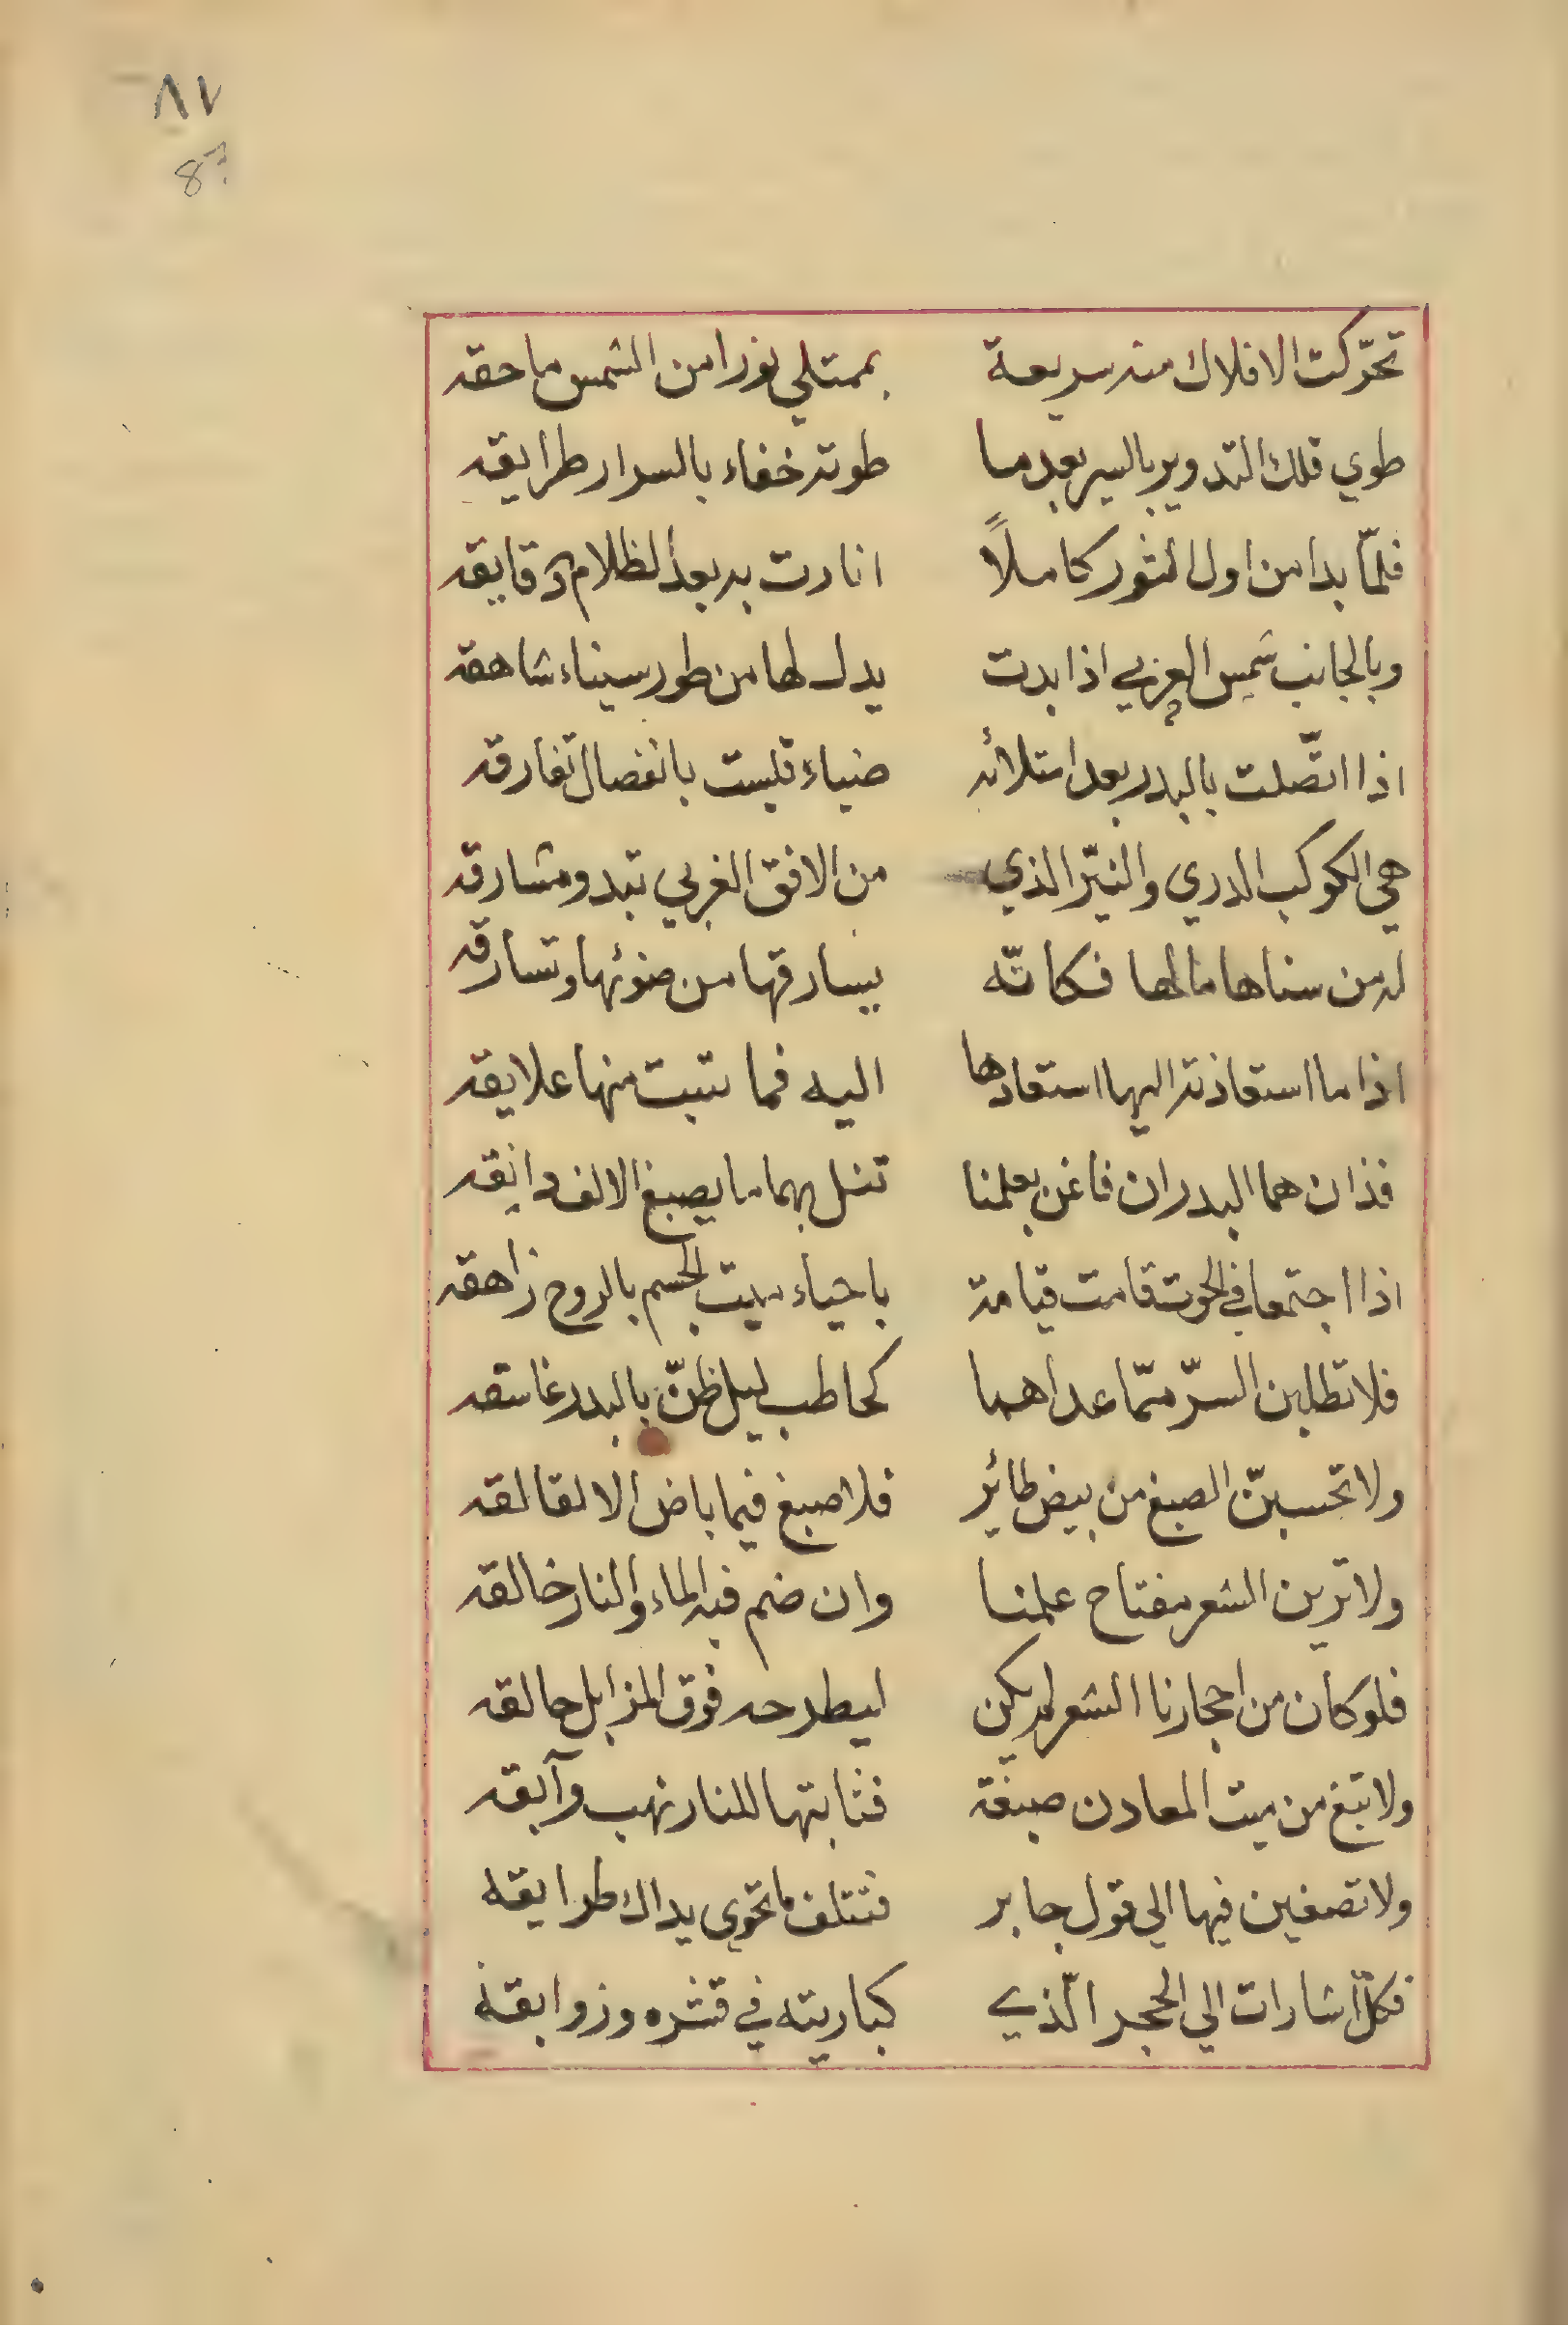 ٨٧
87
تحرّكت الافلاك منه سريعة بممتلي نورا من الشمس ماحقه
طوي فلك التدوير بالسير بعدما طوته خفاء بالسرار طرايقه
فلمّا بدا من اول الثور كاملاً انارت به بعد الظلام دقايقه
وبالجانب شمس الغربي اذا بدت يدل لها من طور سيناء شاهقه
اذا اتّصلت بالبدر بعد امتلائه ضياء فليست بانفصال تفارقه
هي الكوكب الدري والنيّر الذي من الافق الغربي تبدو مشارقه
له من سناها مالها فكانّه يسارقها من ضوئها وتسارقه
اذا ما استعاذته اليها استعادها اليه فما تتبت منها علايقه
فذان هما البدران فاغن بعلمنا تنل بهما ما يصبغ الالف دانقه
اذا اجتمعا في الحوت قامت قيامة باحياء ميت الجسم بالروح زاهقه
فلا تطلبن السرّ ممّا عداهما كحاطب ليل ظنّ بالبدر غاسقه
ولا تحسبنّ الصبغ من بيض طائر فلا صبغ فيما باض الا لقالقه
ولا ترين الشعر مفتاح علمنا وان ضم فيه الماء والنار خالقه
فلو كان من احجارنا الشعر لم يكن ليطرحه فوق المزابل حالقه
ولا تبغ من ميت المعادن صبغة فثابتها للنار نهب وآبقه
ولا تصغين فيها الي قول جابر فتتلف ما تحوي يداك طرايقه
فكلّ اشارات الي الحجر الّذي كباريته في قشره وزوابقه